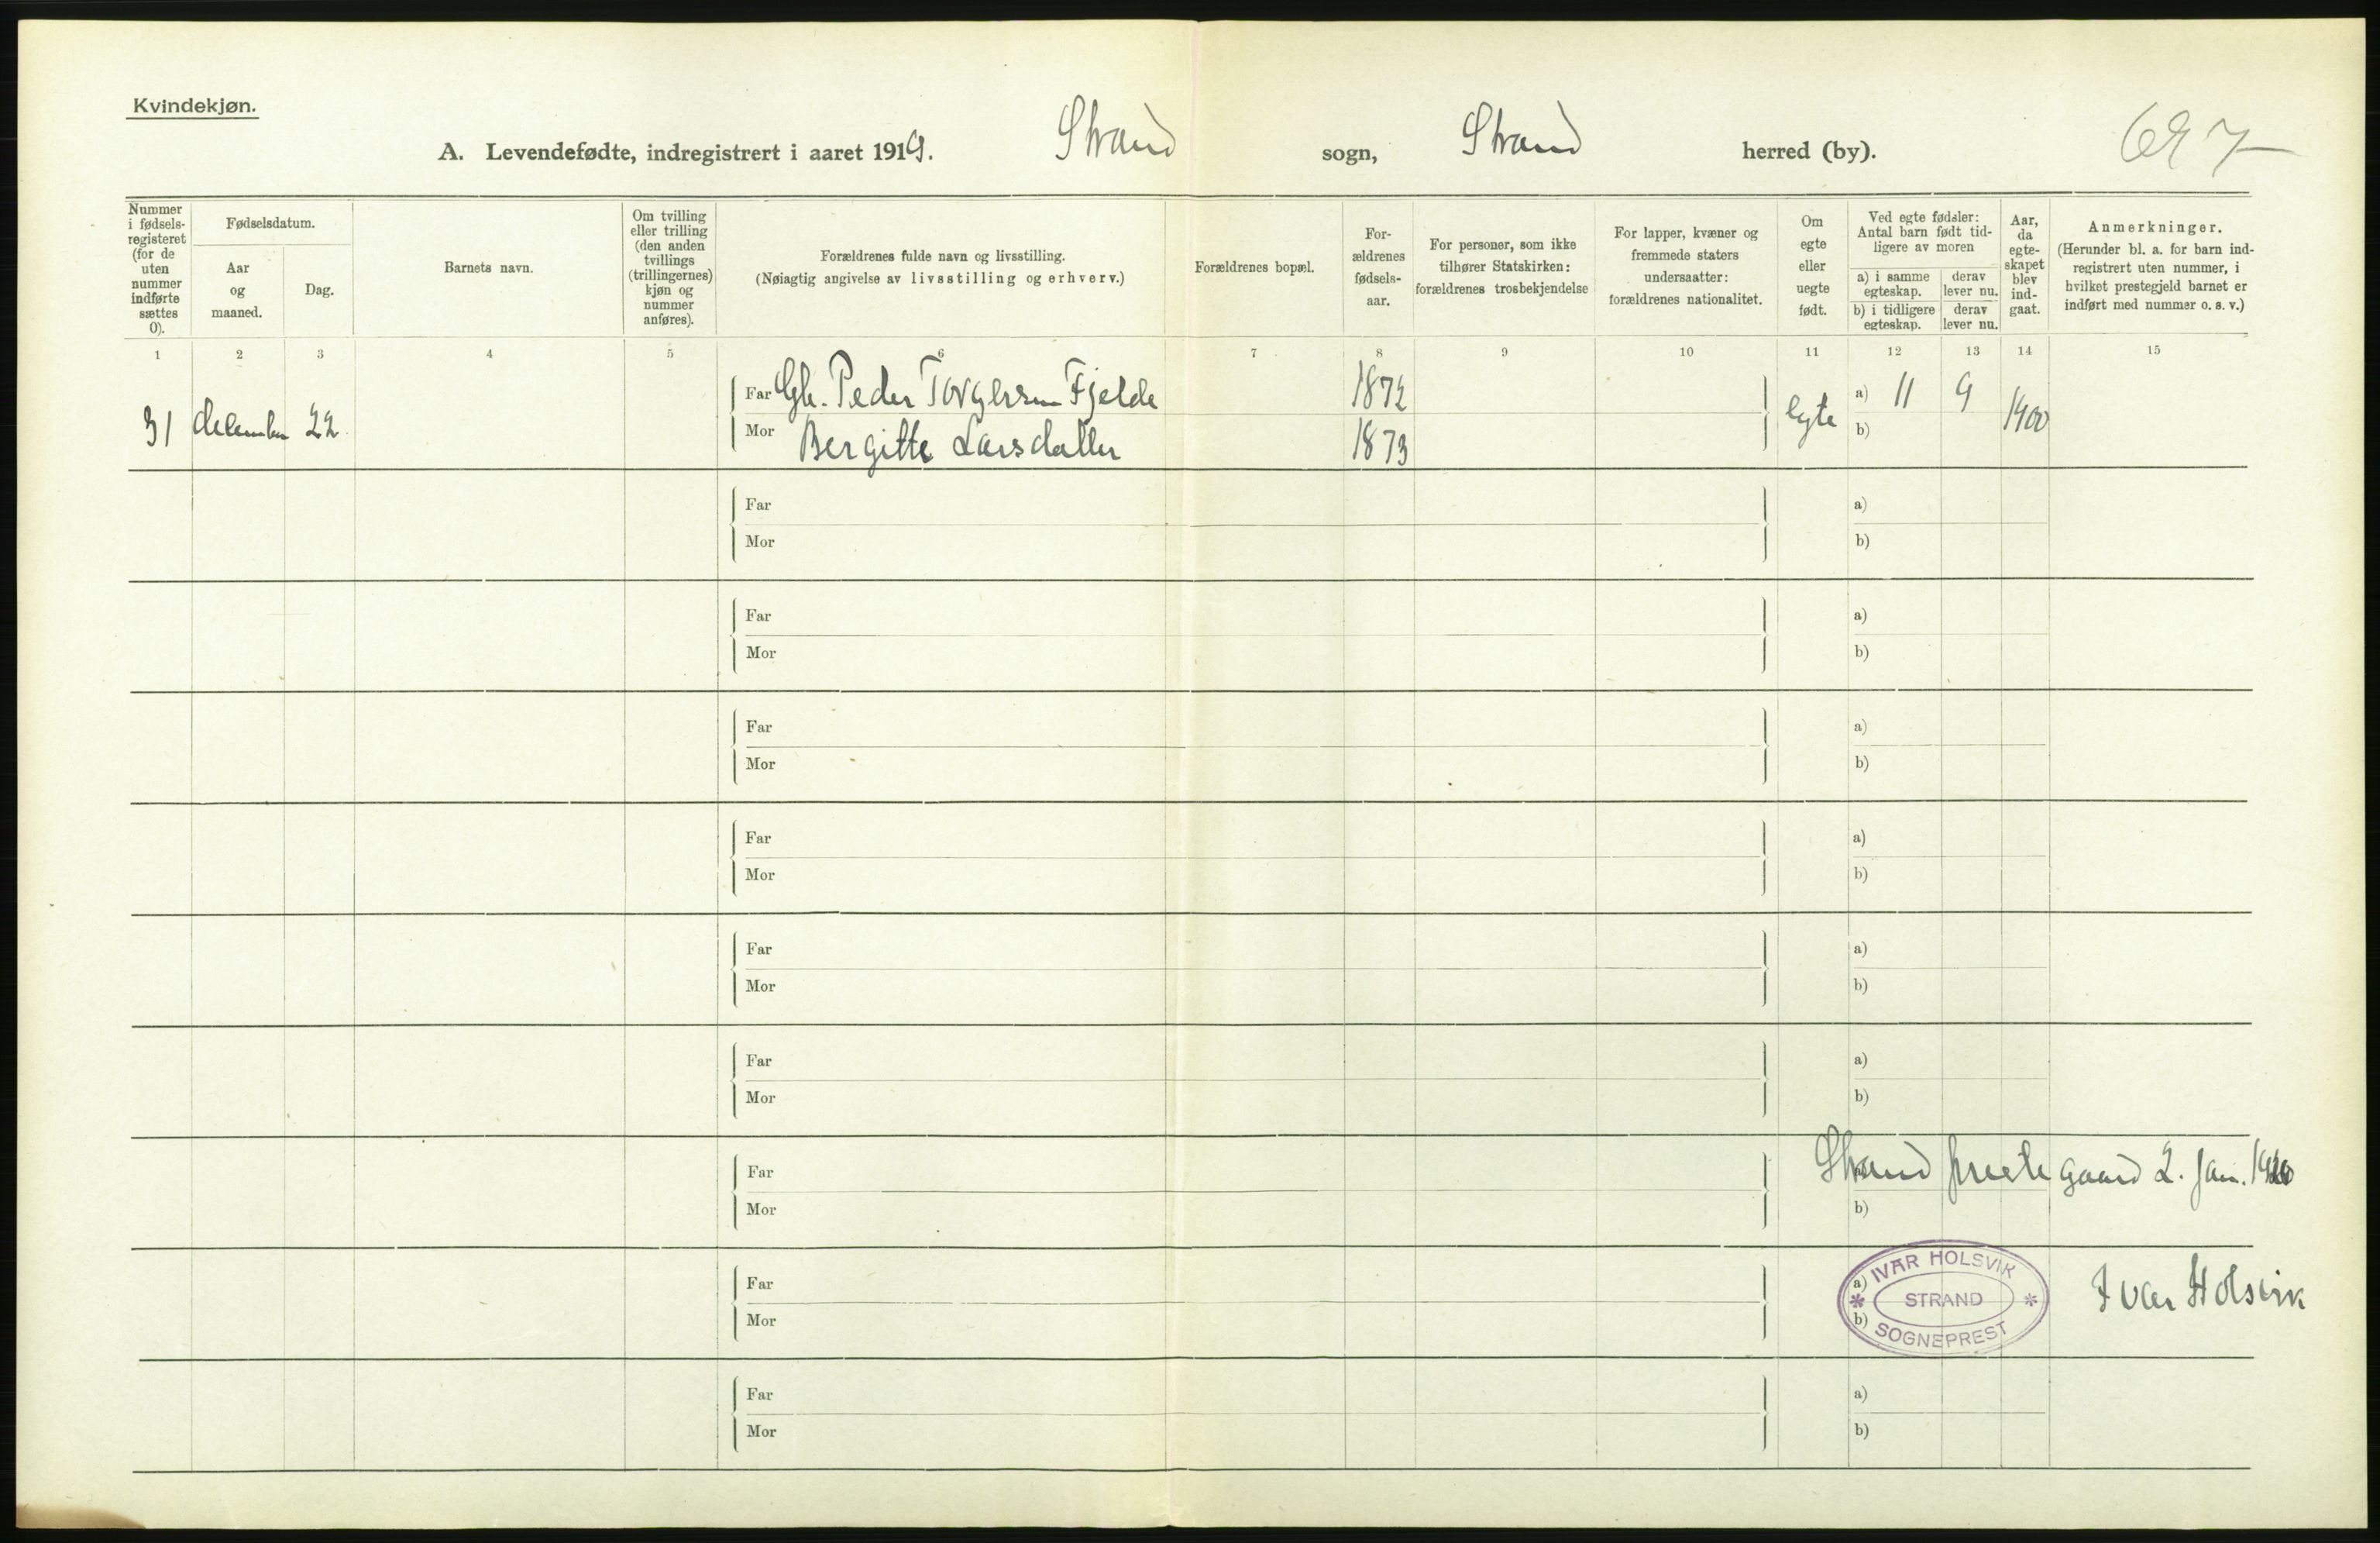 Kvindekjøn.
A. Levendefødte, indregistrert i aaret 1919. Strand sogn, Strand herred (by). 697
Nummer i fødsels-registeret (for de uten nummer indførte sættes 0).
Fødselsdatum.
Aar og maaned.
Dag.
Barnets navn.
Om tvilling eller trilling (den anden tvillings (trillingernes) kjøn og nummer anføres).
Forældrenes fulde navn og livsstilling.
(Nøiagtig angivelse av livsstilling og erhverv.)
Forældrenes bopæl.
For-ældrenes fødsels-aar.
For personer, som ikke tilhører Statskirken: forældrenes trosbekjendelse
For lapper, kvæner og fremmede staters undersaatter: forældrenes nationalitet.
Om egte eller uegte født.
Ved egte fødsler: Antal barn født tid-ligere av moren
a) i samme egteskap.
derav lever nu.
b) i tidligere egteskap.
derav lever nu.
Aar, da egte-skapet blev ind-gaat.
Anmerkninger.
(Herunder bl. a. for barn ind-registrert uten nummer, i hvilket prestegjeld barnet er indført med nummer o. s. v.)
1 2 3 4 5 6 7 8 9 10 11 12 13 14 15
Far Gb. Peder Torgersen Fjelde 1872 a) 11 9
31 december 22 egte 1900
Mor Bergitte Larsdatter 1873 b)
Far a)
Mor b)
Far a)
Mor b)
Far a)
Mor b)
Far a)
Mor b)
Far a)
Mor b)
Far a)
Mor b)
Far Strand prestegaard 2. jan. 1920
Mor b)
Far a)
IVAR HOLSVIK
STRAND
SOGNEPREST
Ivar Holsvik
Mor b)
Far a)
Mor b)